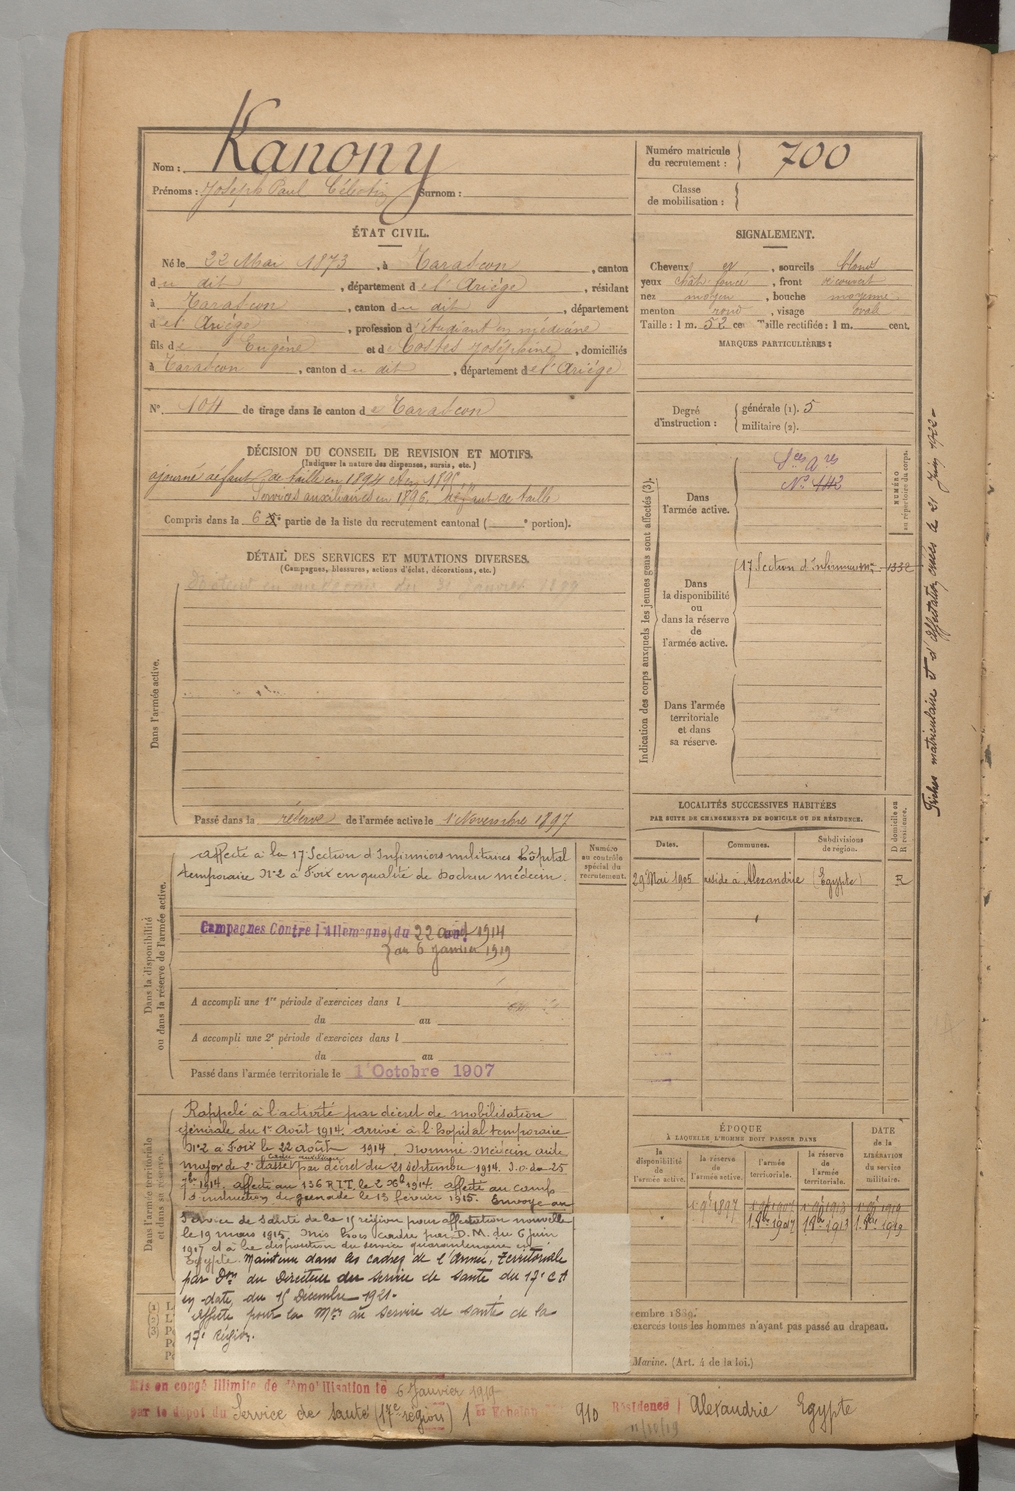 Nom : Kanony
Prénoms : Joseph Paul Célestin Surnom :
Numéro matricule du recrutement : 700
Classe de mobilisation :
ÉTAT CIVIL.
Né le 22 Mai 1873, à Tarascon, canton
du dit, département de l'Ariège, résidant
à Tarascon, canton du dit, département
de l'Ariège, profession d'étudiant en médecine
fils de Eugène et de Costes Joséphine, domiciliés
à Tarascon, canton du dit, département de l'Ariège
N° 104 de tirage dans le canton de Tarascon
SIGNALEMENT.
Cheveux et, sourcils blonds
yeux chât. foncé, front découvert
nez moyen, bouche moyenne
menton rond, visage ovale
Taille : 1 m. 52 cent. Taille rectifiée : 1 m. cent.
MARQUES PARTICULIÈRES :
Degré d'instruction : générale (1). 5
militaire (2).
DÉCISION DU CONSEIL DE REVISION ET MOTIFS.
(Indiquer la nature des dispenses, sursis, etc.)
ajourné défaut de taille en 1894 et en 1895
Services auxiliaires en 1896. défaut de taille
Compris dans la 6e partie de la liste du recrutement cantonal ( e portion).
DÉTAIL DES SERVICES ET MUTATIONS DIVERSES.
(Campagnes, blessures, actions d'éclat, décorations, etc.)
Dans l'armée active.
Passé dans la réserve de l'armée active le 1 Novembre 1897
Indication des corps auxquels les jeunes gens sont affectés (3).
Dans l'armée active.
Sces Ares
N° 442
NUMÉRO au répertoire du corps.
Dans la disponibilité ou dans la réserve de l'armée active.
17 Section d'Infirmiers Mres 1332
Dans l'armée territoriale et dans sa réserve.
Fiches matriculaire et d'affectation créées le 21 Juin 1922
Dans la disponibilité ou dans la réserve de l'armée active.
Affecté à la 17 Section d'Infirmiers militaires hôpital
temporaire N°2 à Foix en qualité de Docteur médecin.
Numéro au contrôle spécial du recrutement.
Campagnes Contre l'Allemagne du 22 août 1914
au 6 janvier 1919
A accompli une 1re période d'exercices dans l
du au
A accompli une 2e période d'exercices dans l
du au
Passé dans l'armée territoriale le 1 Octobre 1907
LOCALITÉS SUCCESSIVES HABITÉES
PAR SUITE DE CHANGEMENTS DE DOMICILE OU DE RÉSIDENCE.
Dates. Communes. Subdivisions de région. D domicile ou R résidence.
29 Mai 1905 réside à Alexandrie (Egypte) R
Dans l'armée territoriale et dans sa réserve.
Rappelé à l'activité par décret de mobilisation
générale du 1er Août 1914. Arrivé à l'hôpital temporaire
N°2 à Foix le 22 août 1914. Nommé Médecin aide
major de 2e classe par décret du 21 septembre 1914. J.O. du 25
7bre 1914. affecté au 136 R.I.T. le 2 Xbre 1914. affecté au camp
d'instruction de grenade le 13 février 1915. Envoyé au
Service de Santé de la 15 région pour affectation nouvelle
le 19 mars 1915. Mis hors cadre par D.M. du 6 juin
1917 et à la disposition du service quarantenaire en
Egypte. Maintenu dans les cadres de l'Armée territoriale
par Don du Directeur du service de santé du 17e C A
en date du 15 Décembre 1921.
Affecté pour la Mon au service de santé de la
17e région.
ÉPOQUE
À LAQUELLE L'HOMME DOIT PASSER DANS
DATE de la LIBÉRATION du service militaire.
la disponibilité de l'armée active. la réserve de l'armée active. l'armée territoriale. la réserve de l'armée territoriale.
1 9bre 1897
1 8bre 1907 1 8bre 1913 1 8bre 1919
embre 1889.
exercés tous les hommes n'ayant pas passé au drapeau.
Marine. (Art. 4 de la loi.)
Mis en congé illimité de démobilisation le 6 Janvier 1919
par le dépôt du Service de santé (17e région) 1er Echelon 910 Résidence Alexandrie Egypte
11/10/19